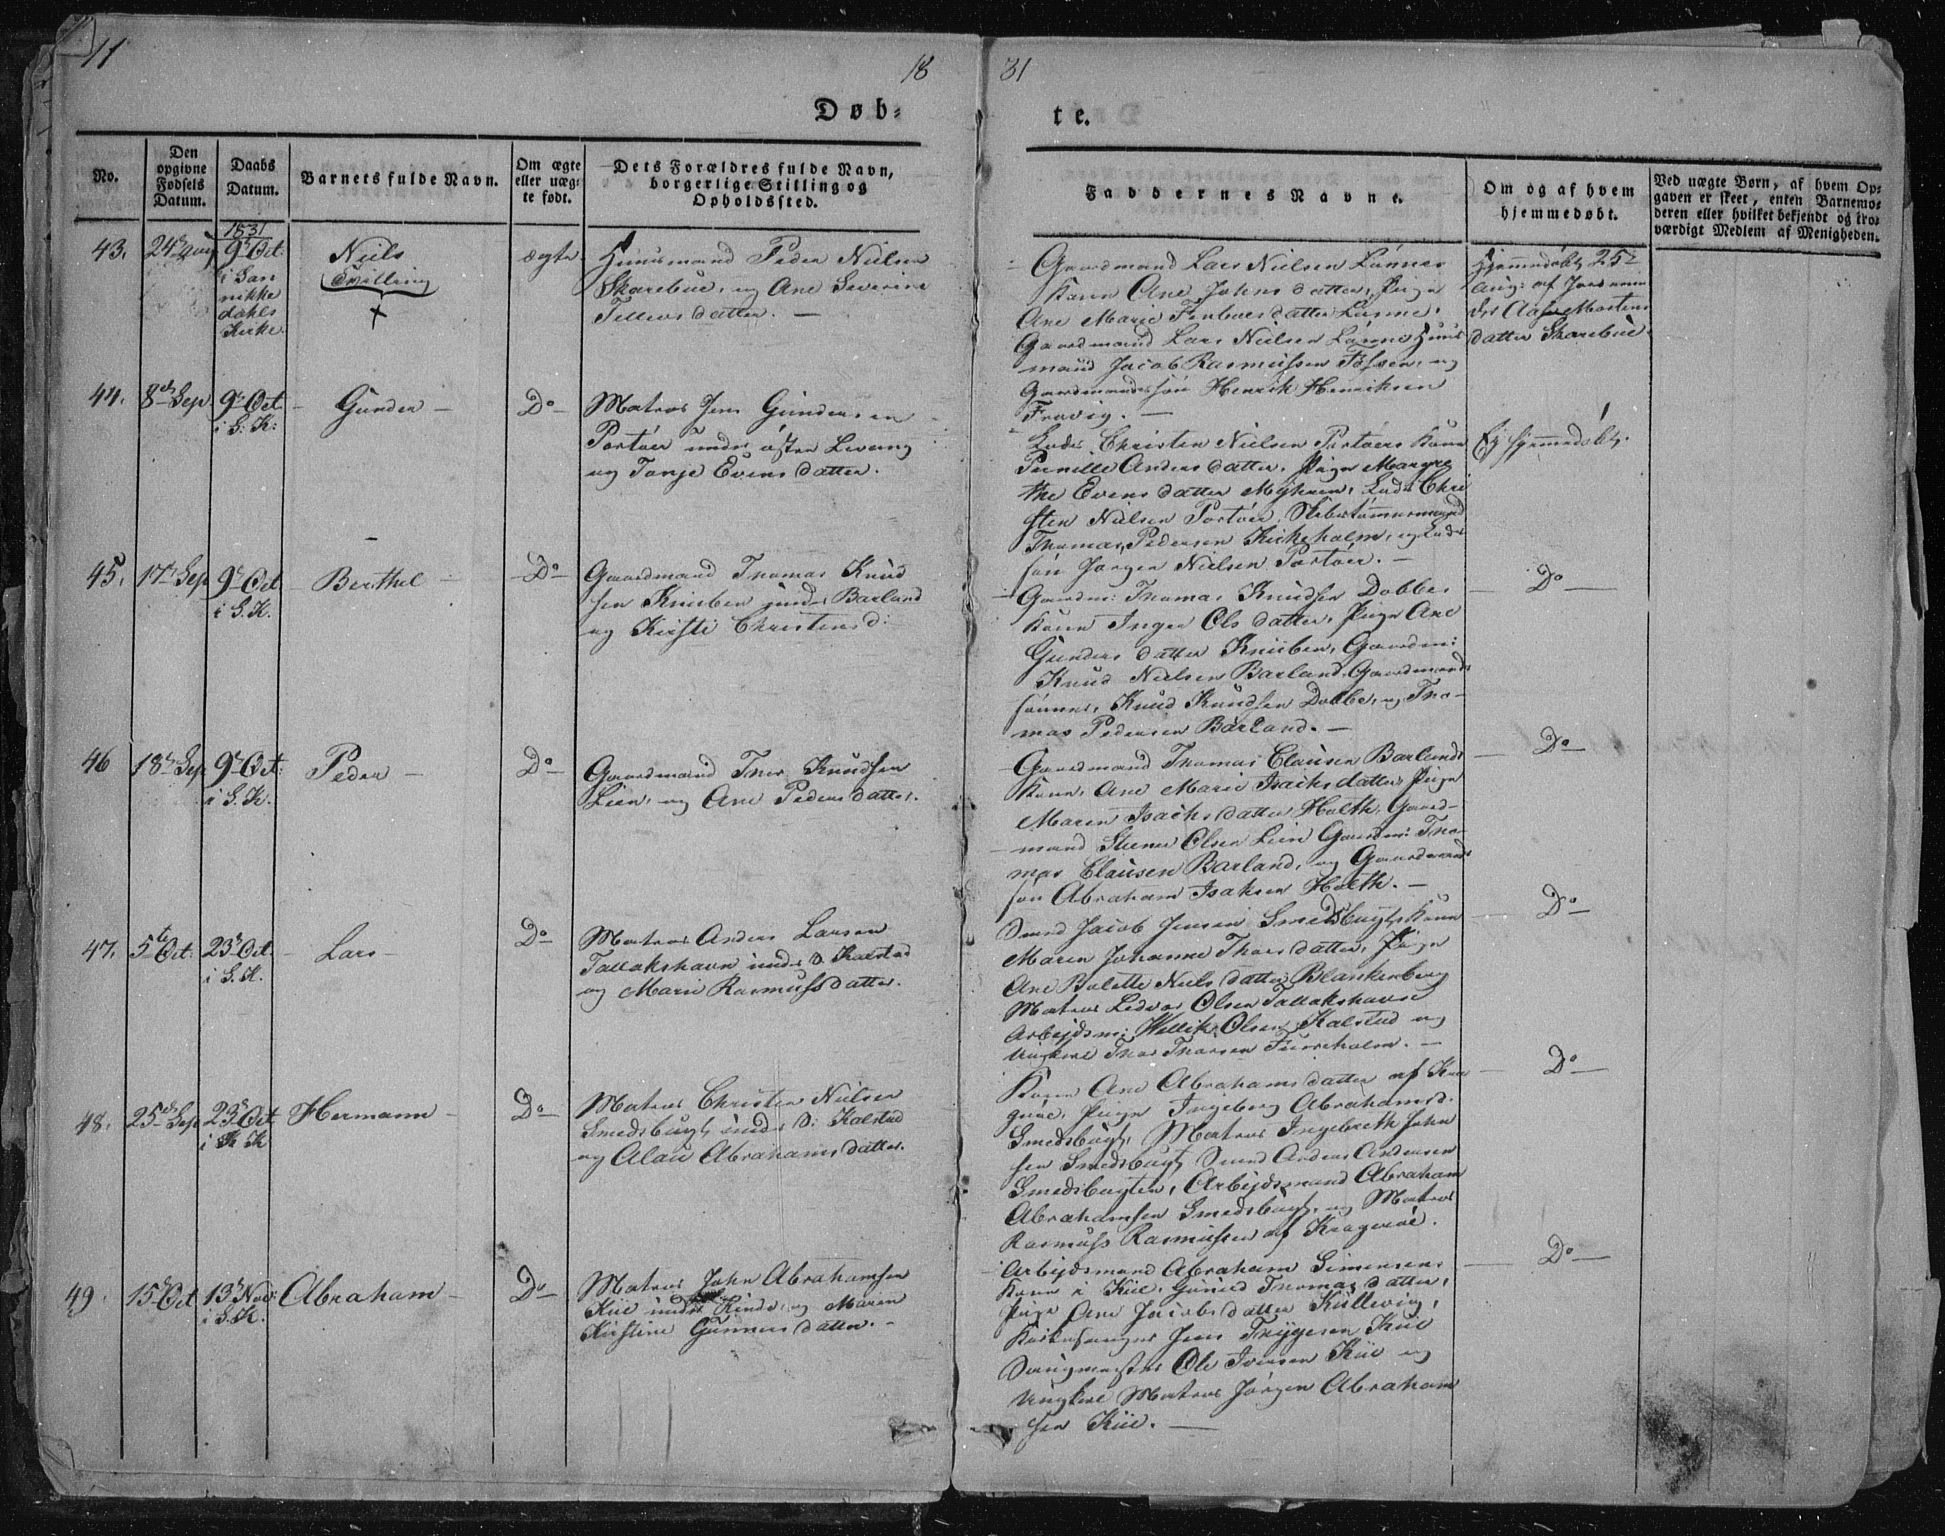 11
18
31
Døb-
te.
No.
Den opgivne Fødsels Datum.
Daabs Datum.
Barnets fulde Navn.
Om ægte eller uægte født.
Dets Forældres fulde Navn, borgerlige Stilling og Opholdssted.
Faddernes Navne.
Om og af hvem hjemmedøbt.
Ved uægte Børn, af hvem Op-
gaven er skeet, enten Barnemo-
deren eller hvilket bekjendt og tro-
værdigt Medlem af Menigheden.
1831
43. 24de Aug 9de Oct:
i San
nikke
dahls
Kirke.
Niels
Tvilling
ægte
Huusmand Peder Nielsen
Skarebue, og Ane Severine
Tellevsdatter. —
Gaardmand Lars Nielsen Lønnes
Kone Ane Johnsdatter, Pige
Ane Marie
Gaardmand Lars Nielsen Lønne Huus
mand Jacob Rasmussen Fossen, og
Gaardmandssøn Henrik Henriksen
Frovig. —
Hjemmedøbt 25de
Aug: af
Mortens
datter Skarebue.
44. 8de Sep. 9de Oct.
i S: K:
Gunder —
Do —
Matros Jens Gundersen
Portøer under østre Levang
og Tonje Evensdatter.
Lods Christen Nielsen Portøers Kone
Pernille Andersdatter, Pige Margre
the Evensdatter Myhren, Lods Chri
sten Nielsen Portøer, Skibstømmermand
Thomas Pedersen Kirkeholm, og Lods
søn Jørgen Nielsen Portøer. —
Ej hjemmedøbt.
45. 17de Sep 9de Oct
i S. K.
Berthel —
Do —
Gaardmand Thomas Knud
sen Knieben under Barland
og Kirsti Christensd:
Gaardm: Thomas Knudsen Dobbes
Kone Inger Olsdatter, Pige Ane
Gundersdatter Knieben, Gaardm:
Knud Nielsen Barland, Gaardmands
sønner, Knud Knudsen Dobbe, og Tho-
mas Pedersen Barland. —
Do —
46 18de Sep 9de Oct:
i S. K.
Peder —
Do —
Gaardmand Thor Knudsen
Lien, og Ane Pedersdatter.
Gaardmand Thomas Clausen Barlands
Kone, Ane Marie Isachsdatter, Pige
Maren Isachsdatter Holth, Gaard-
mand Steener Olsen Lien Gaardm: Tho-
mas Clausen Barland, og Gaardmands
søn Abraham Isaksen Holth. —
Do —
47. 5te Oct: 23de Oct.
i S. K.
Lars —
Do —
Matros Anders Larsen
Tallakshavn under D. Kalstad
og Maren Rasmussdatter.
Smed Jacob Jensen Smedsbugts Kone
Maren Johanne Thorsdatter, Pige
Ane Bolette Nielsdatter Blankenberg
Matros Ledvor Olsen Tallakshavn
Arbejdsm: Wellik Olsen Kalstad og
Ungkarl Thor Thorsen Furreholm. —
Do —
48. 25de Sep 23de Oct
i S. K
Hermann —
Do —
Matros Christen Nielsen
Smedsbugt under D: Kalstad
og Alau Abrahamsdatter.
Kone Ane Abrahamsdatter af Kra
gerøe, Pige Ingeborg Abrahamsd.
Smedsbugt, Matros Ingebreth John
sen Smedsbugt, Smed Anders Andersen
Smedsbugten, Arbejdsmand Abraham
Abrahamsen Smedsbugt, og Matros
Rasmuss Rasmussen af Kragerøe.
Do —
49. 15de Oct 13de Nov:
i S. K.
Abraham —
Do —
Matros John Abrahamsen
Kiie under Kinds, og Maren
Kirstine Gunnersdatter. —
Arbejdsmand Abraham Simonsens
Kone i Kiie, Gunild Thomasdatter,
Pige Ane Jacobsdatter Küllevig,
Kirkesanger Jens Trygesen Kiie
Ole Iversen Kiie og
Ungkarl Matros Jørgen Abraham
sen Kiie. —
Do —